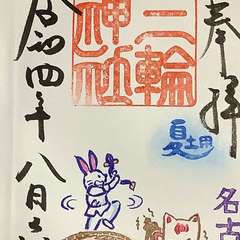 奉拝
夏土用
名古
三輪
神社
令和四年八月